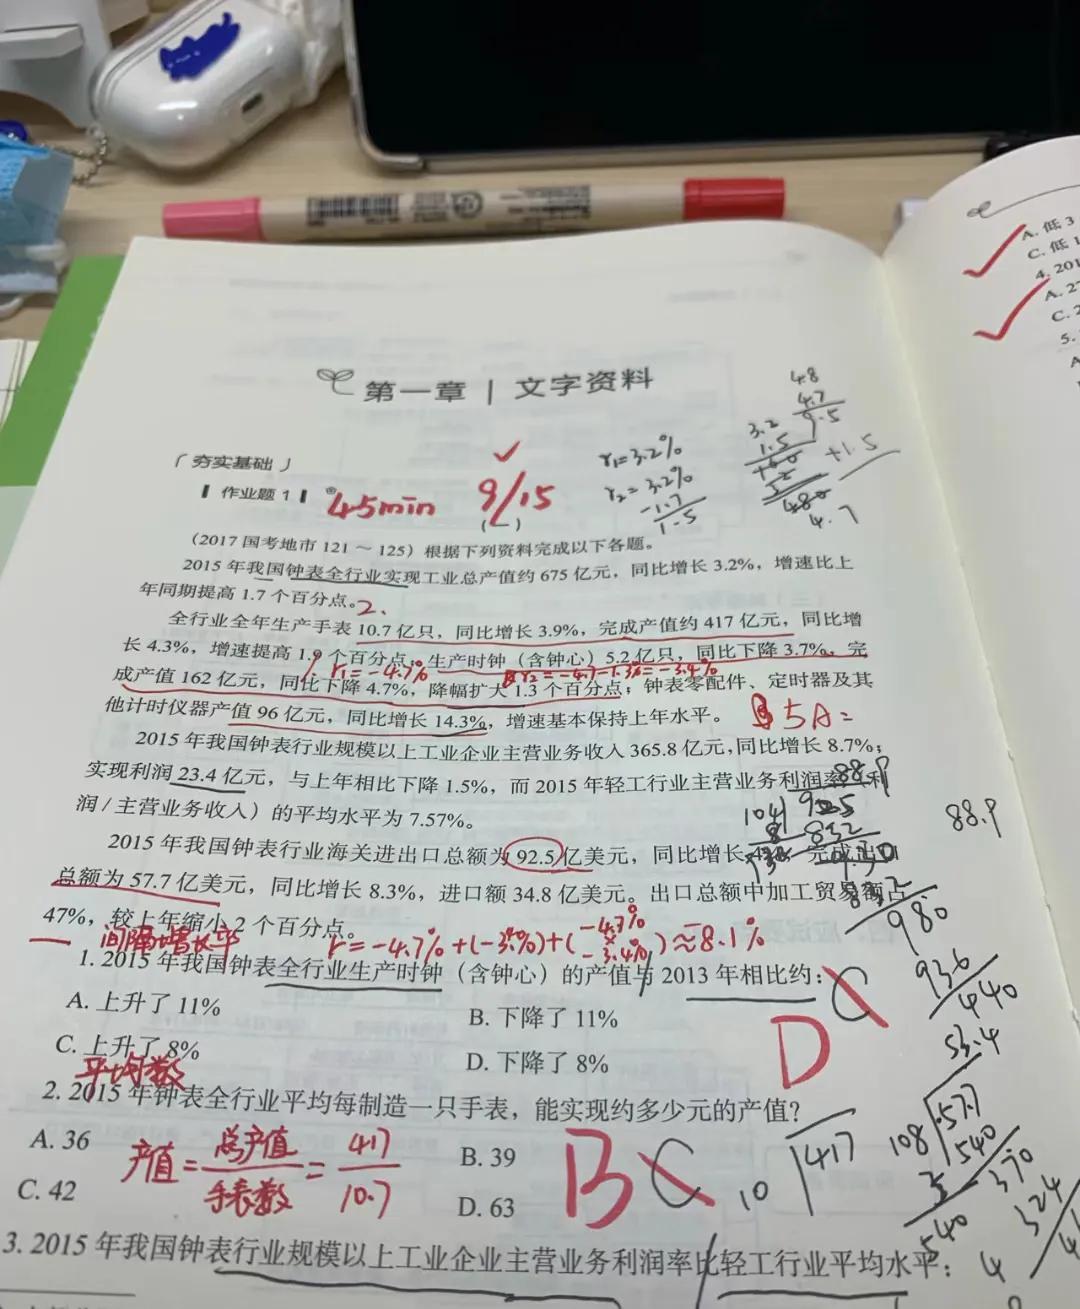 第一章 | 文字资料
4.8
4.7
9.5
3.2
1.5
+1.5
4.7
r₁=3.2%
r₂=3.2%
-1.7
1.5
「 夯实基础 」
▎作业题 1 ▎ 45min 9/15
(2017 国考地市 121 ~ 125) 根据下列资料完成以下各题。
2015 年我国钟表全行业实现工业总产值约 675 亿元，同比增长 3.2%，增速比上
年同期提高 1.7 个百分点。2.
全行业全年生产手表 10.7 亿只，同比增长 3.9%，完成产值约 417 亿元，同比增
长 4.3%，增速提高 1.9 个百分点；生产时钟（含钟心）5.2 亿只，同比下降 3.7%，完
r₁=-4.7% r₂=-4.7-1.3%=-3.4%
成产值 162 亿元，同比下降 4.7%，降幅扩大 1.3 个百分点；钟表零配件、定时器及其
他计时仪器产值 96 亿元，同比增长 14.3%，增速基本保持上年水平。 5A=
2015 年我国钟表行业规模以上工业企业主营业务收入 365.8 亿元，同比增长 8.7%；
实现利润 23.4 亿元，与上年相比下降 1.5%，而 2015 年轻工行业主营业务利润率（利
润 / 主营业务收入）的平均水平为 7.57%。
88.9
2015 年我国钟表行业海关进出口总额为 92.5 亿美元，同比增长 完成出口
总额为 57.7 亿美元，同比增长 8.3%，进口额 34.8 亿美元。出口总额中加工贸易额占
47%，较上年缩小 2 个百分点。
980
936
440
53.4
间隔增长率 r=-4.7%+(-3.4%)+(-4.7%×-3.4%)≈8.1%
1. 2015 年我国钟表全行业生产时钟（含钟心）的产值与 2013 年相比约： C
D
A. 上升了 11%
B. 下降了 11%
C. 上升了 8%
D. 下降了 8%
平均数
2. 2015 年钟表全行业平均每制造一只手表，能实现约多少元的产值？
A. 36
B. 39
C. 42
D. 63
产值=总产值/手表数=417/10.7
B C
10 417
108 57.7
540
370
324
540
3. 2015 年我国钟表行业规模以上工业企业主营业务利润率比轻工行业平均水平：
A. 低 3
C. 低 1
4. 201
A. 2
C. 2
5.
A